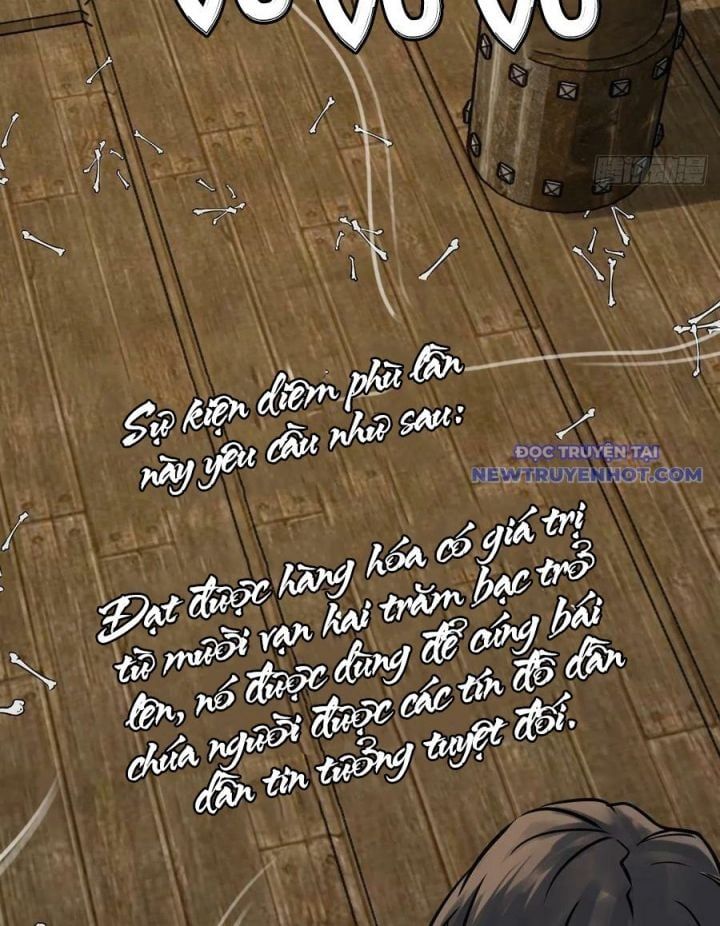 VÙ VÙ VÙ
Sự kiện diêm phù lần
này yêu cầu như sau:
ĐỌC TRUYỆN TẠI
NEWTRUYENHOT.COM
Đạt được hàng hóa có giá trị
từ mười vạn hai trăm bạc trở
lên, nó được dùng để cúng bái
chúa người được các tín đồ dần
dần tin tưởng tuyệt đối.